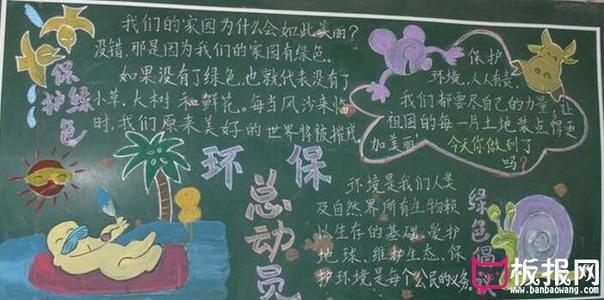 保护绿色
我们的家园为什么会如此美丽?
没错,那是因为我们的家园有绿色。
如果没有了绿色,也就代表没有了
小草、大树和鲜花。每当风沙来临
时,我们原来美好的世界将被摧残。
保护
环境,人人有责。
我们都要尽自己的力量,让
祖国的每一片土地装点得更
加美丽
今天你做到了
吗?
环保
总动员
环境是我们人类
及自然界所有生物赖
以生存的基础。爱护
地球、维护生态、保
护环境是每个公民的义务。
绿色倡议
板报网
www.banbaowang.com